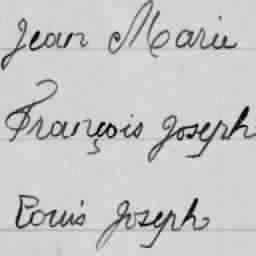 Jean Marie
François Joseph
Louis Joseph